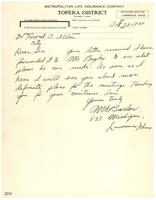 METROPOLITAN LIFE INSURANCE COMPANY
TOPEKA DISTRICT
Oct 28-1920
Dr Forrest C. Allen
City.
Dear Sir: Your letter received. I have
forwarded it to Mr Bagley to see what
plans he can make. As soon as
I hear I will see you about more
definite plans for the meeting. Thanking
you for your courtesies I am
Yours Truly
Michigan,
Lawrence, Kans